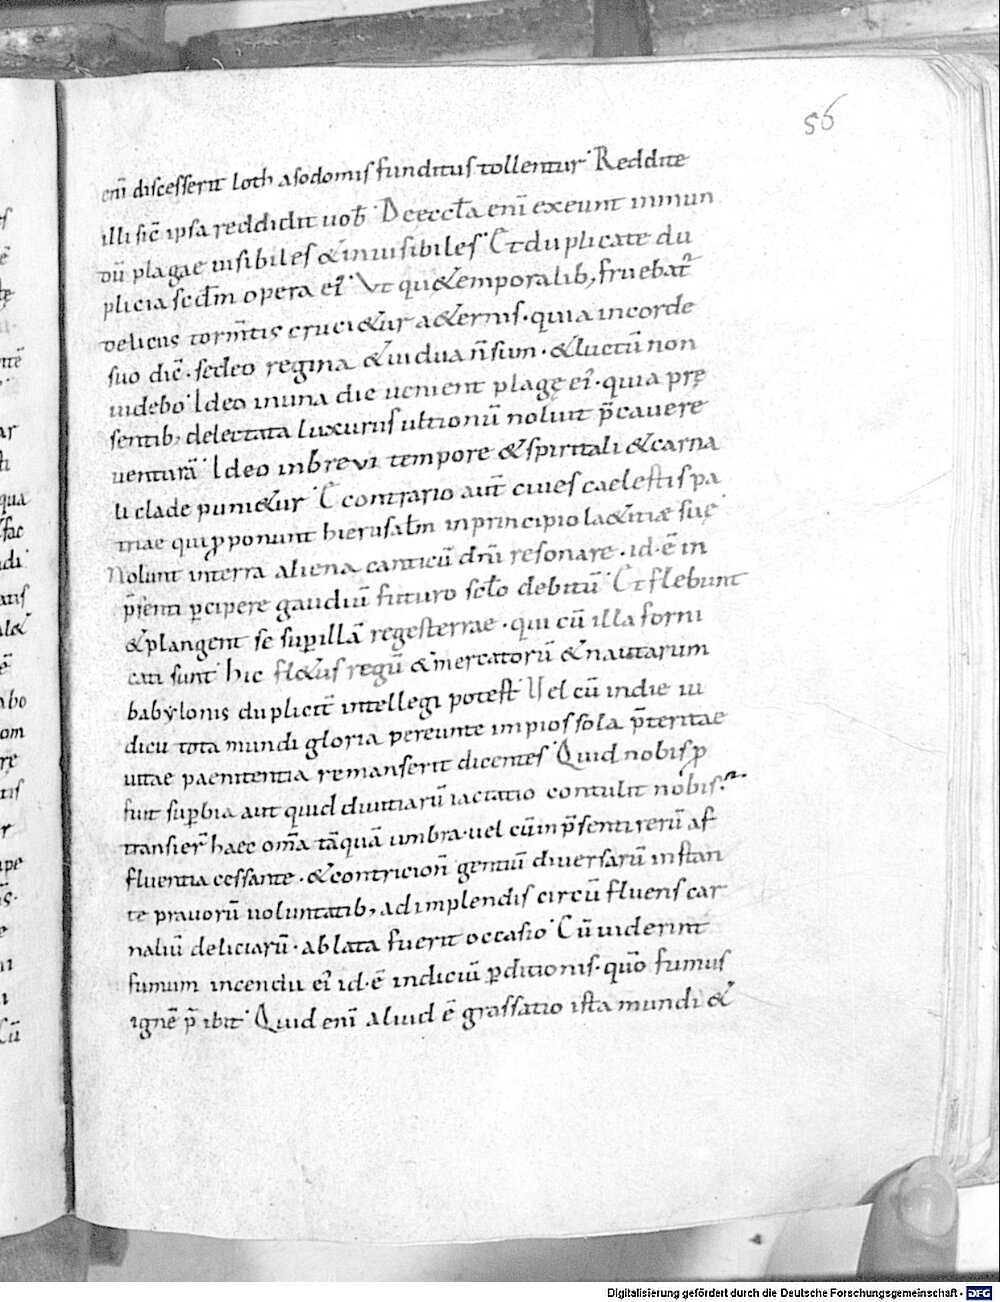 56
enī discesserit loth asodomis funditus tollentur· Reddite
illi sic̄ ipsa reddidit uob̄· De eccla enī exeunt inmun
dū plagae uisibiles & inuisibiles· Et duplicate du
plicia scdm̄ opera ei᷒· Vt qu& temporalib; fruebat᷒
deliciis torm̄tis cruci&ur a&ernis· quia incorde
suo dic̄· sedeo regina & uidua n̄ sum· & luctū non
uidebo· Ideo inuna die uenient plagę ei᷒· quia prę
sentib; delectata luxuriis ultionū noluit p̄cauere
uenturā· Ideo inbrevi tempore & spiritali & carna
li clade puni&ur· E contrario aut̄ ciues caelestis pa
triae qui ꝓponunt hierusalm̄ inprincipio la&itiæ suę
Nolunt interra aliena canticū dn̄i resonare· id· ē in
p̄senti ꝑcipere gaudiū futuro sclo debitū· Et flebunt
& plangent se suꝑillā reges terrae· qui cū illa forni
cati sunt· hic fl&us regū & mercatorū & nautarum
babẏlonis duplicit̄ intellegi potest· Vel cū indie iu
dicii tota mundi gloria pereunte impios sola p̄teritae
uitae paenitentia remanserit dicentes· Quid nobis ꝓ
fuit suꝑbia aut quid diuitiarū iactatio contulit nobis?
transier̄ haec om̄a tāquā umbra· uel cū in p̄senti rerū af
fluentia cessante· & contricion̄ gentiū diuersarū instan
te prauorū uoluntatib; adimplendis circū fluens car
naliū deliciarū· ablata fuerit occasio· Cū uiderint
fumum incendii ei᷒ id· ē indiciū ꝑditionis· quō fumus
ignē p̄ ibit· Quid enī aliud ē grassatio ista mundi &
Digitalisierung gefördert durch die Deutsche Forschungsgemeinschaft - DFG